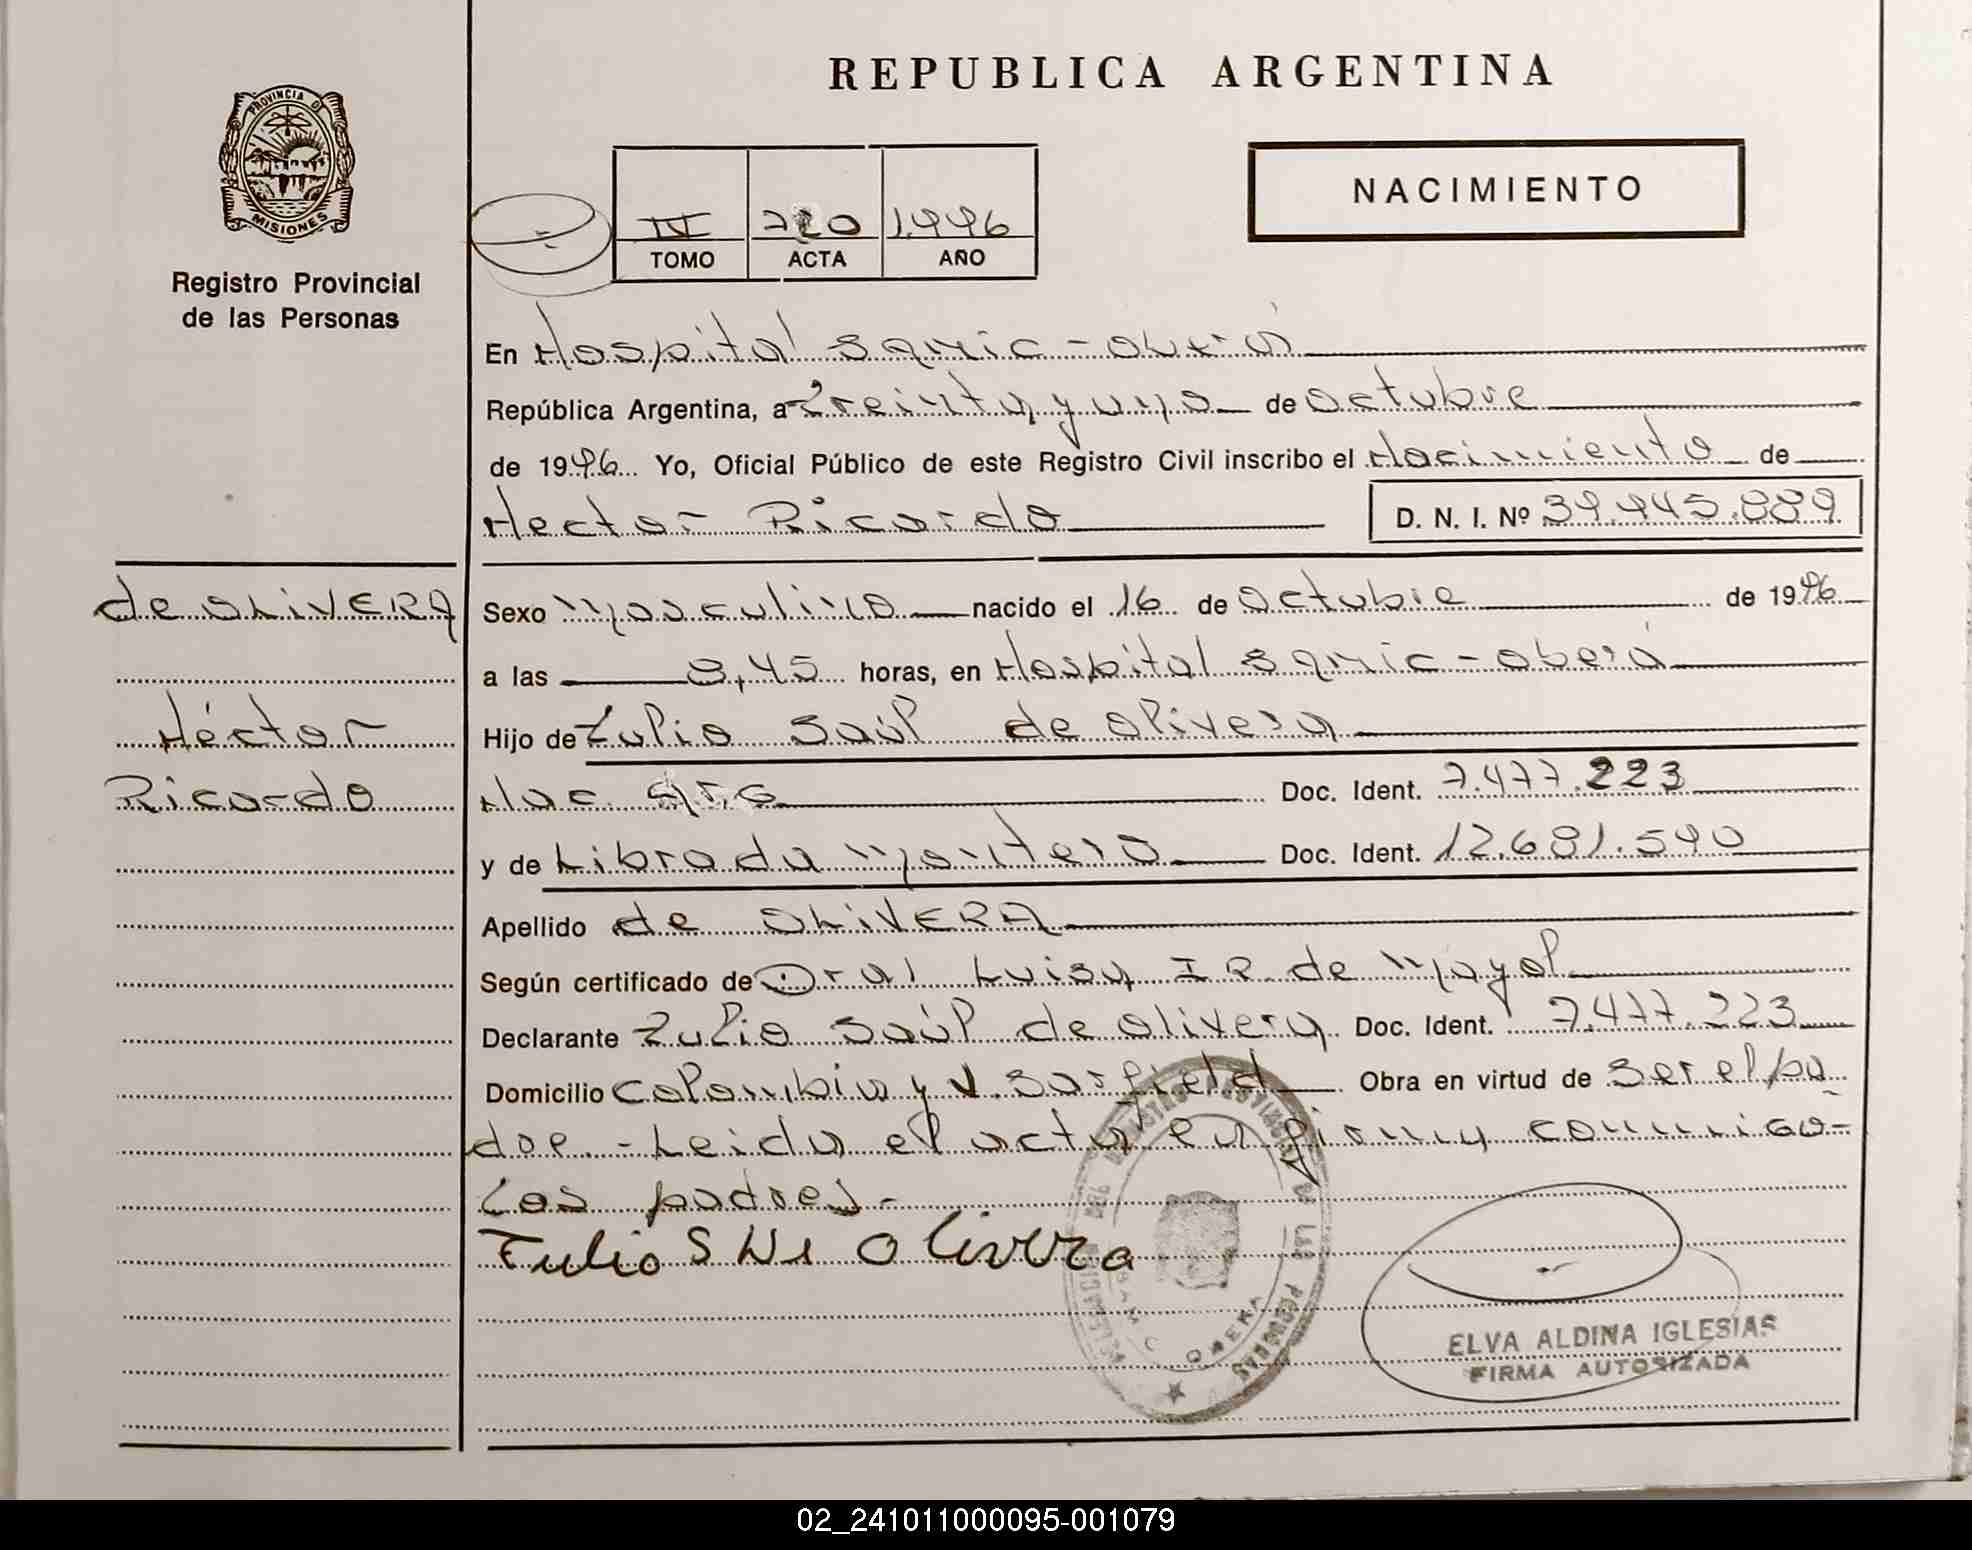 REPUBLICA ARGENTINA
PROVINCIA DE
MISIONES
Registro Provincial
de las Personas
NACIMIENTO
IV 720 1.996
TOMO ACTA AÑO
En Hospital Samic - Oberá
República Argentina, a treinta y uno de octubre
de 1996 Yo, Oficial Público de este Registro Civil inscribo el Nacimiento de
Hector Ricardo D. N. I. Nº 39.945.889
de OLIVERA
Héctor
Ricardo
Sexo Masculino nacido el 16 de octubre de 1996
a las 8,45 horas, en Hospital Samic - Oberá
Hijo de Tulio Saúl de Olivera
Nac. Arg Doc. Ident. 7.477.223
y de Librada Montero Doc. Ident. 12.681.590
Apellido de OLIVERA
Según certificado de Dra. Luisa I R de Mayol
Declarante Tulio Saúl de Olivera Doc. Ident. 7.477.223
Domicilio Colombia y V. Sarfield Obra en virtud de ser el pa
dre - Leida el acta en firmy conmigo-
Los padres -
Tulio S de Olivera
DE LAS PERSONAS
OBERA
ELVA ALDINA IGLESIAS
FIRMA AUTORIZADA
02_241011000095-001079